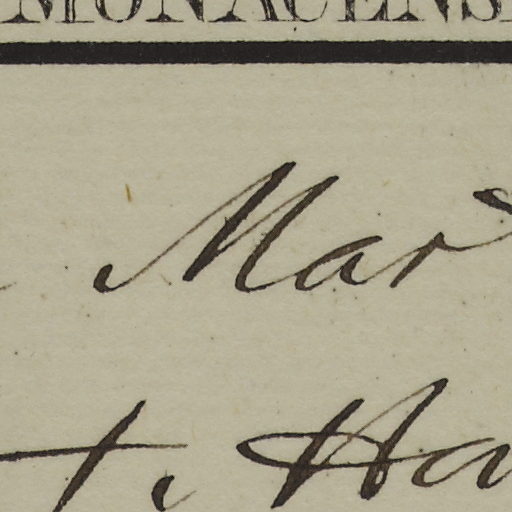 MONACENS
Mar
t. Ha